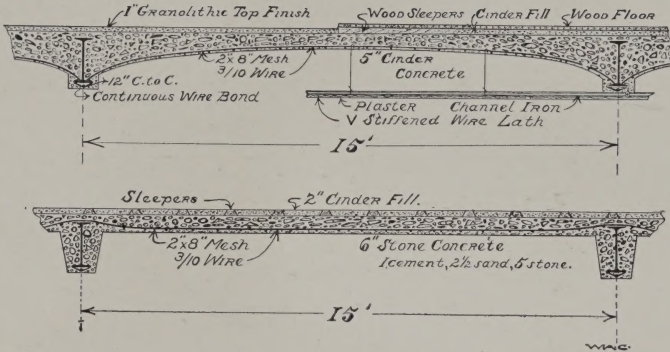 1" Granolithic Top Finish
Wood Sleepers Cinder Fill Wood Floor
2"x8" Mesh
3/10 Wire
5" Cinder
Concrete
12" C. to C.
Continuous Wire Bond
Plaster Channel Iron
V Stiffened Wire Lath
15'
Sleepers 2" Cinder Fill.
2"x8" Mesh
3/10 Wire
6" Stone Concrete
1 cement, 2½ sand, 5 stone.
15'